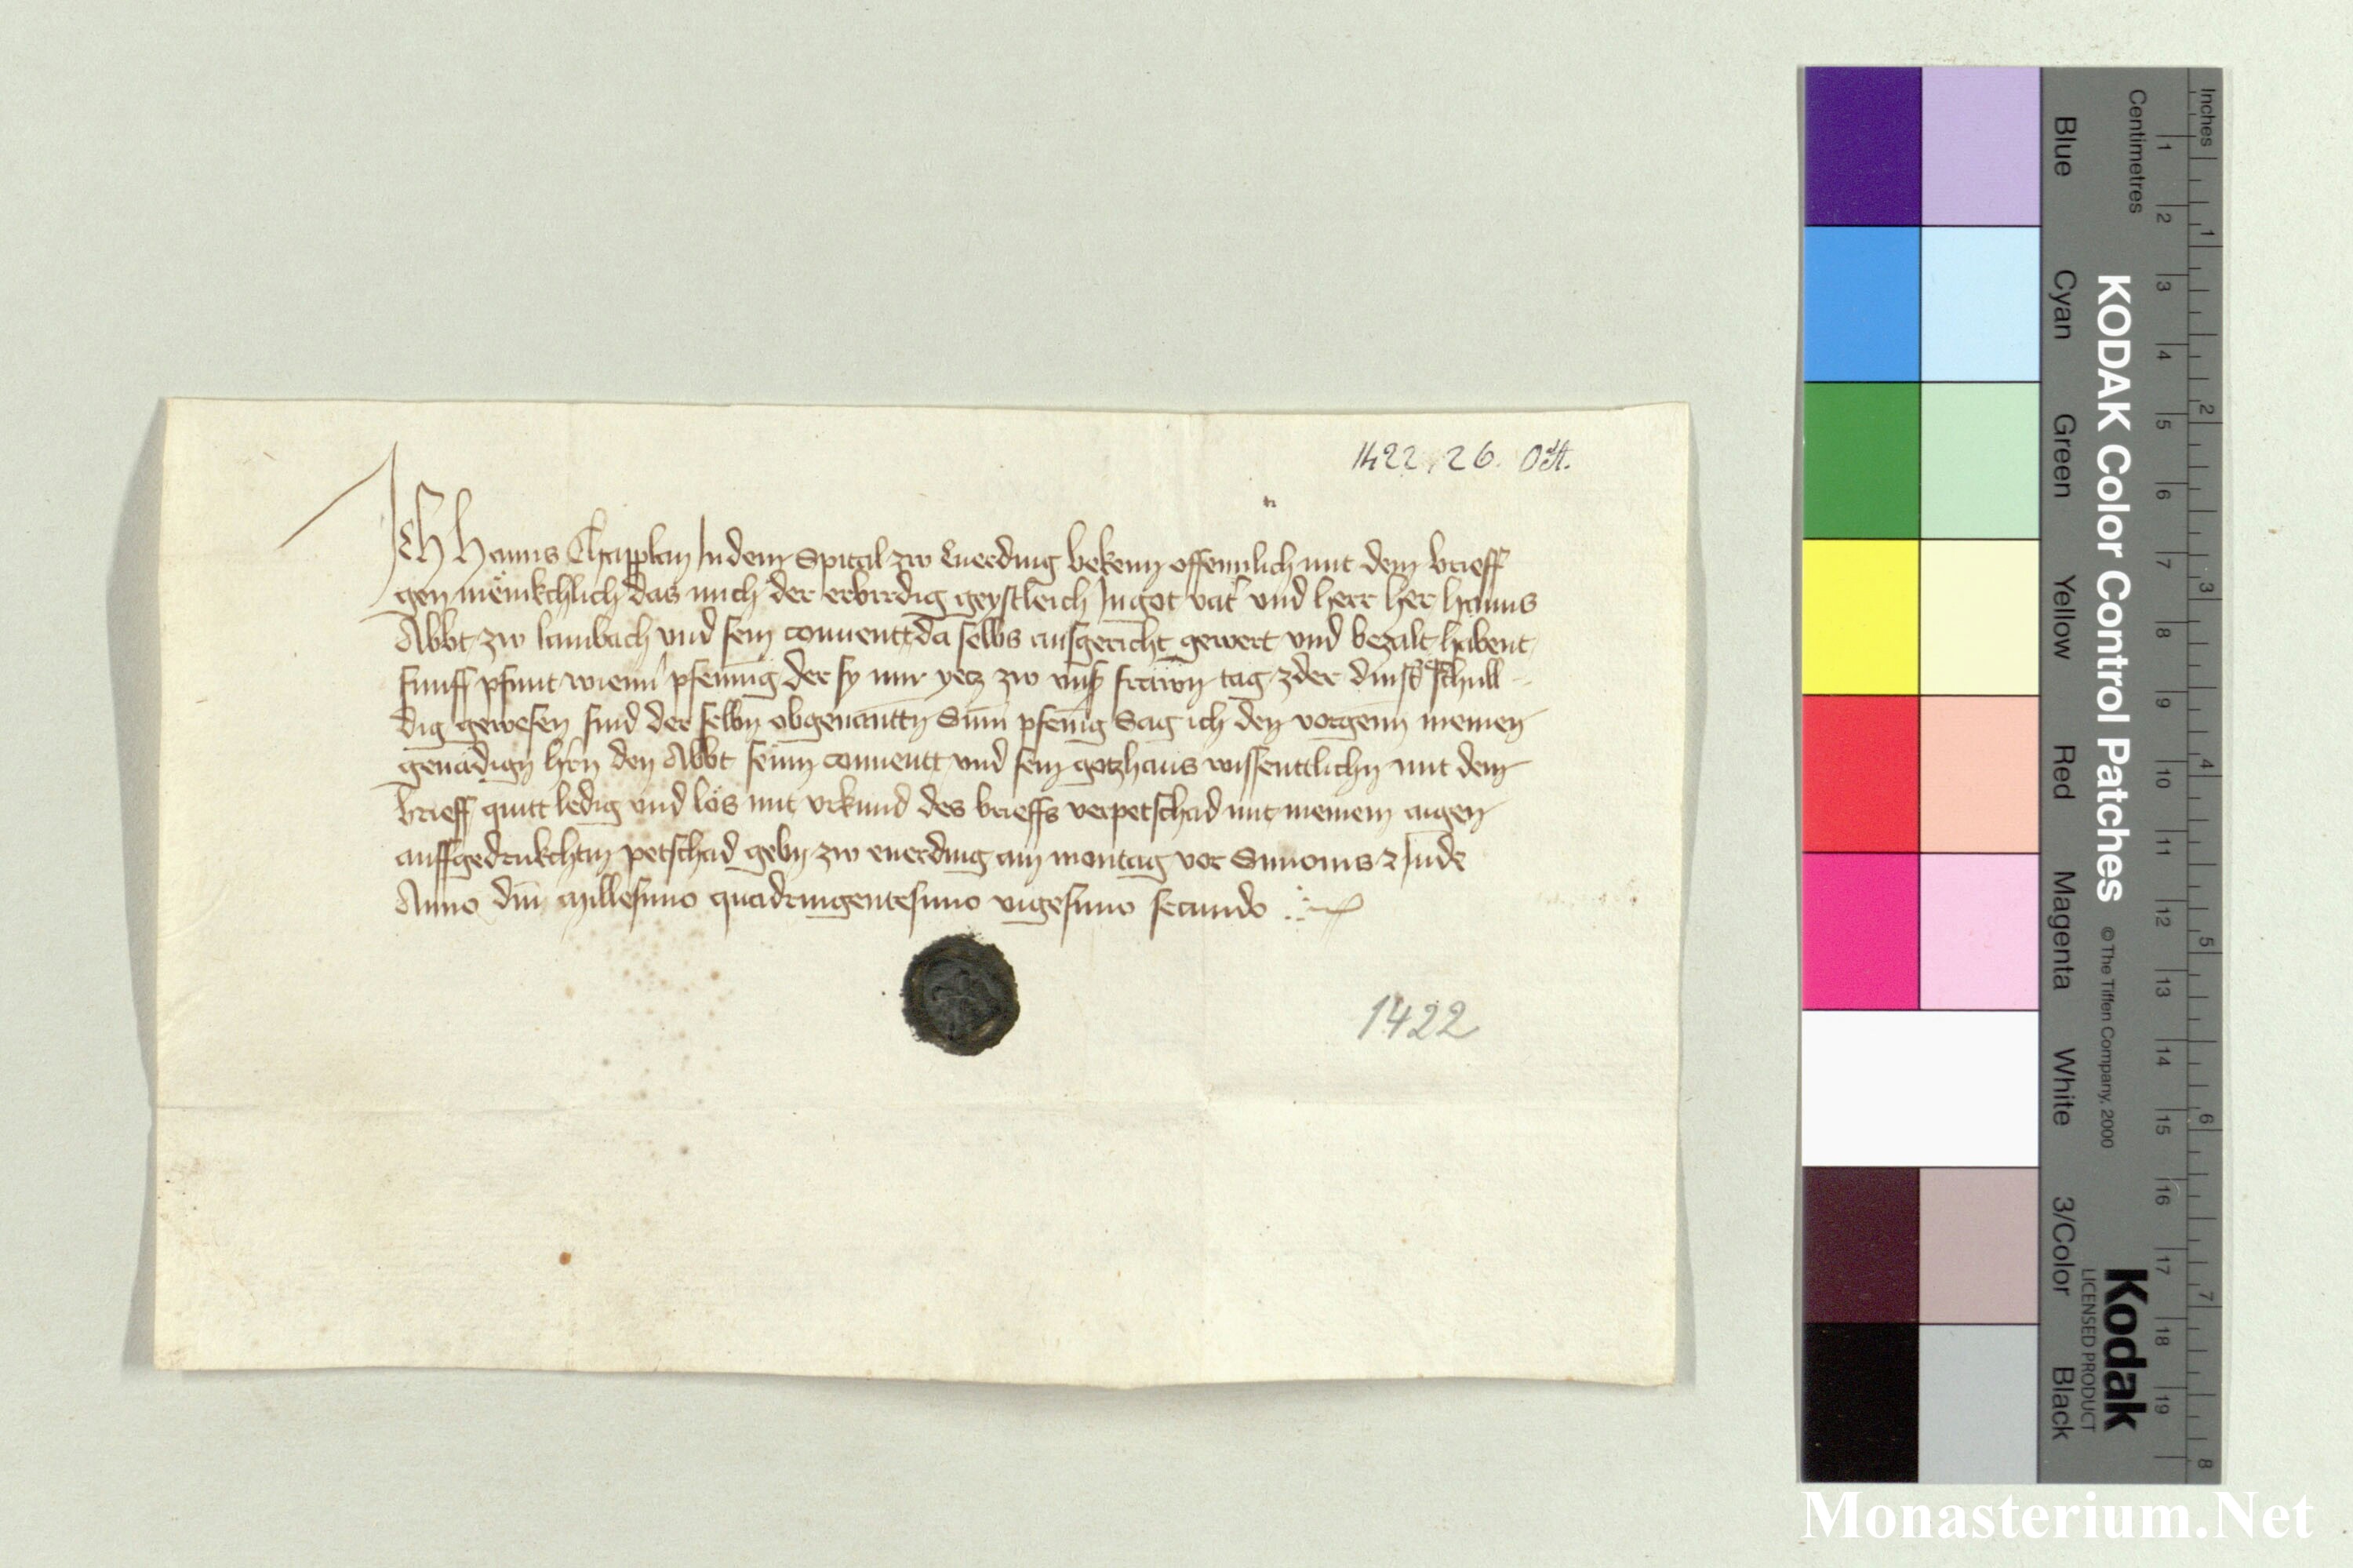 1422. 26. Oct.
Ich Hanns Chapplan In dem Spital zw Euerding bekenn offennlich mit dem brieff
gen mënikchlich das mich der erbirdig geystleich In got vat' und herr her hanns
Abbt zw lambach vnd sein conuentt da selbs ausgericht gewert vnd bezalt habent
funff pfunt wienn' pfennig der sy mir yetz zw vnß frawn tag zder dinst schull
dig gewesen sind der selbn obgenantn Sum pfenig Sag ich den vorgenn meinen
genadign hrn den Abbt seinn conuentt vnd sein gotzhaus wissenttlichn mit dem
brieff quitt ledig vnd los mit vrkund des brieffs verpetschad mit meinem aigen
auffgedrukchtm petschad gebn zw euerding am montag vor Simonis & Jude
Anno dni Millesimo quadringentesimo vigesimo secundo
1422
Blue
Cyan
Green
Yellow
Red
Magenta
White
3/Color
Black
KODAK Color Control Patches
© The Tiffen Company, 2000
Kodak
LICENSED PRODUCT
Centimetres
1 2 3 4 5 6 7 8 9 10 11 12 13 14 15 16 17 18 19
Inches
1 2 3 4 5 6 7 8
Monasterium.Net